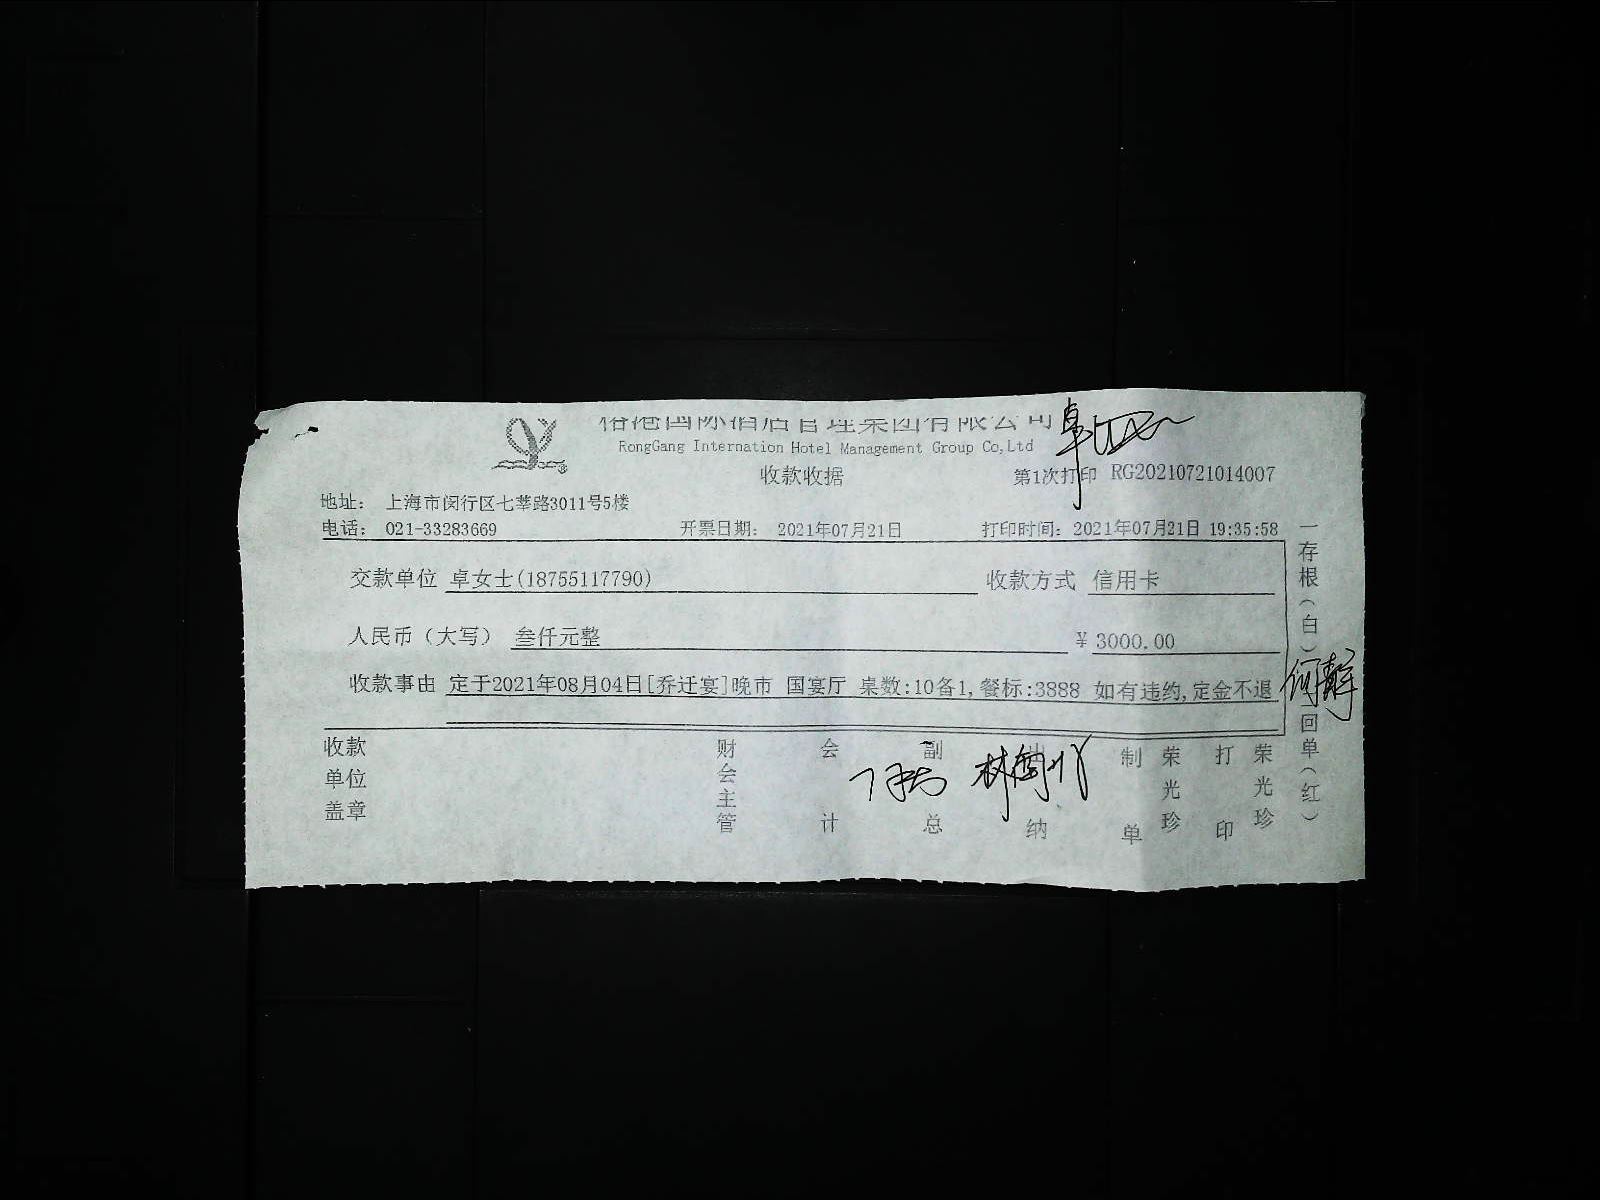 榕港国际酒店管理集团有限公司
RongGang International Hotel Management Group Co,Ltd
收款收据
第1次打印 RG20210721014007
地址： 上海市闵行区七莘路3011号5楼
电话： 021-33283669 开票日期： 2021年07月21日 打印时间： 2021年07月21日 19:35:58
交款单位 卓女士(18755117790) 收款方式 信用卡
人民币（大写） 叁仟元整 ¥ 3000.00
收款事由 定于2021年08月04日[乔迁宴]晚市 国宴厅 桌数:10备1,餐标:3888 如有违约,定金不退
收款单位盖章 财会主管 会计 副总 出纳 制单 荣光珍 打印 荣光珍
一存根（白） 二回单（红）
何静